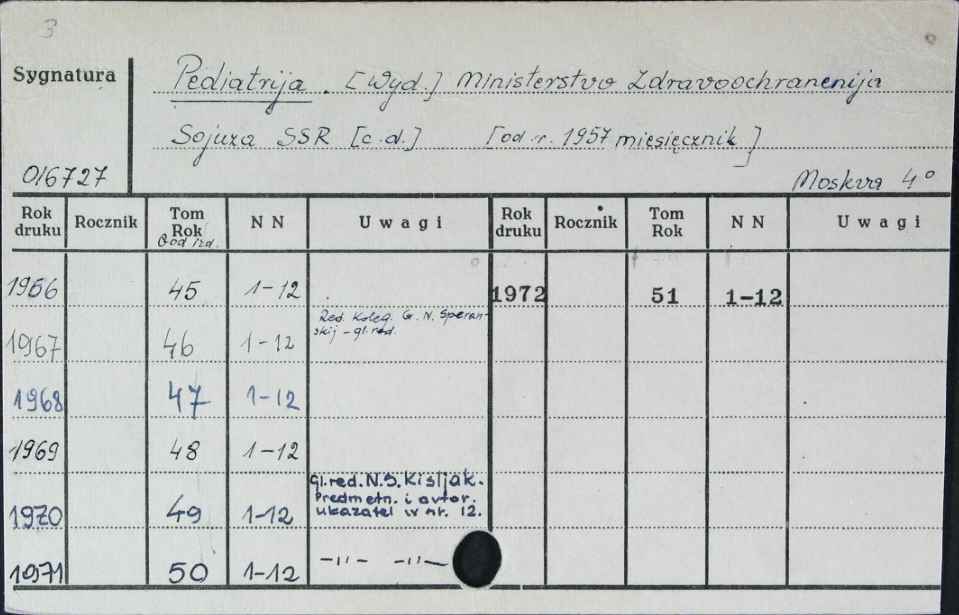 3
Sygnatura
Pediatrija. [Wyd.] Ministerstvo Zdravoochranenija
Sojuza SSR [c.d.] [od r. 1957 miesięcznik]
016727
Moskva 4°
Rok druku Rocznik Tom Rok God izd. NN Uwagi Rok druku Rocznik Tom Rok NN Uwagi
1966 45 1-12 1972 51 1-12
Red. Koleg. G. N. Speran-
skij - gl. red.
1967 46 1-12
1968 47 1-12
1969 48 1-12
Gl. red. N.S. Kisljak.
Predmetn. i avtor.
ukazatel w nr. 12.
1970 49 1-12
1971 50 1-12 -"- -"-